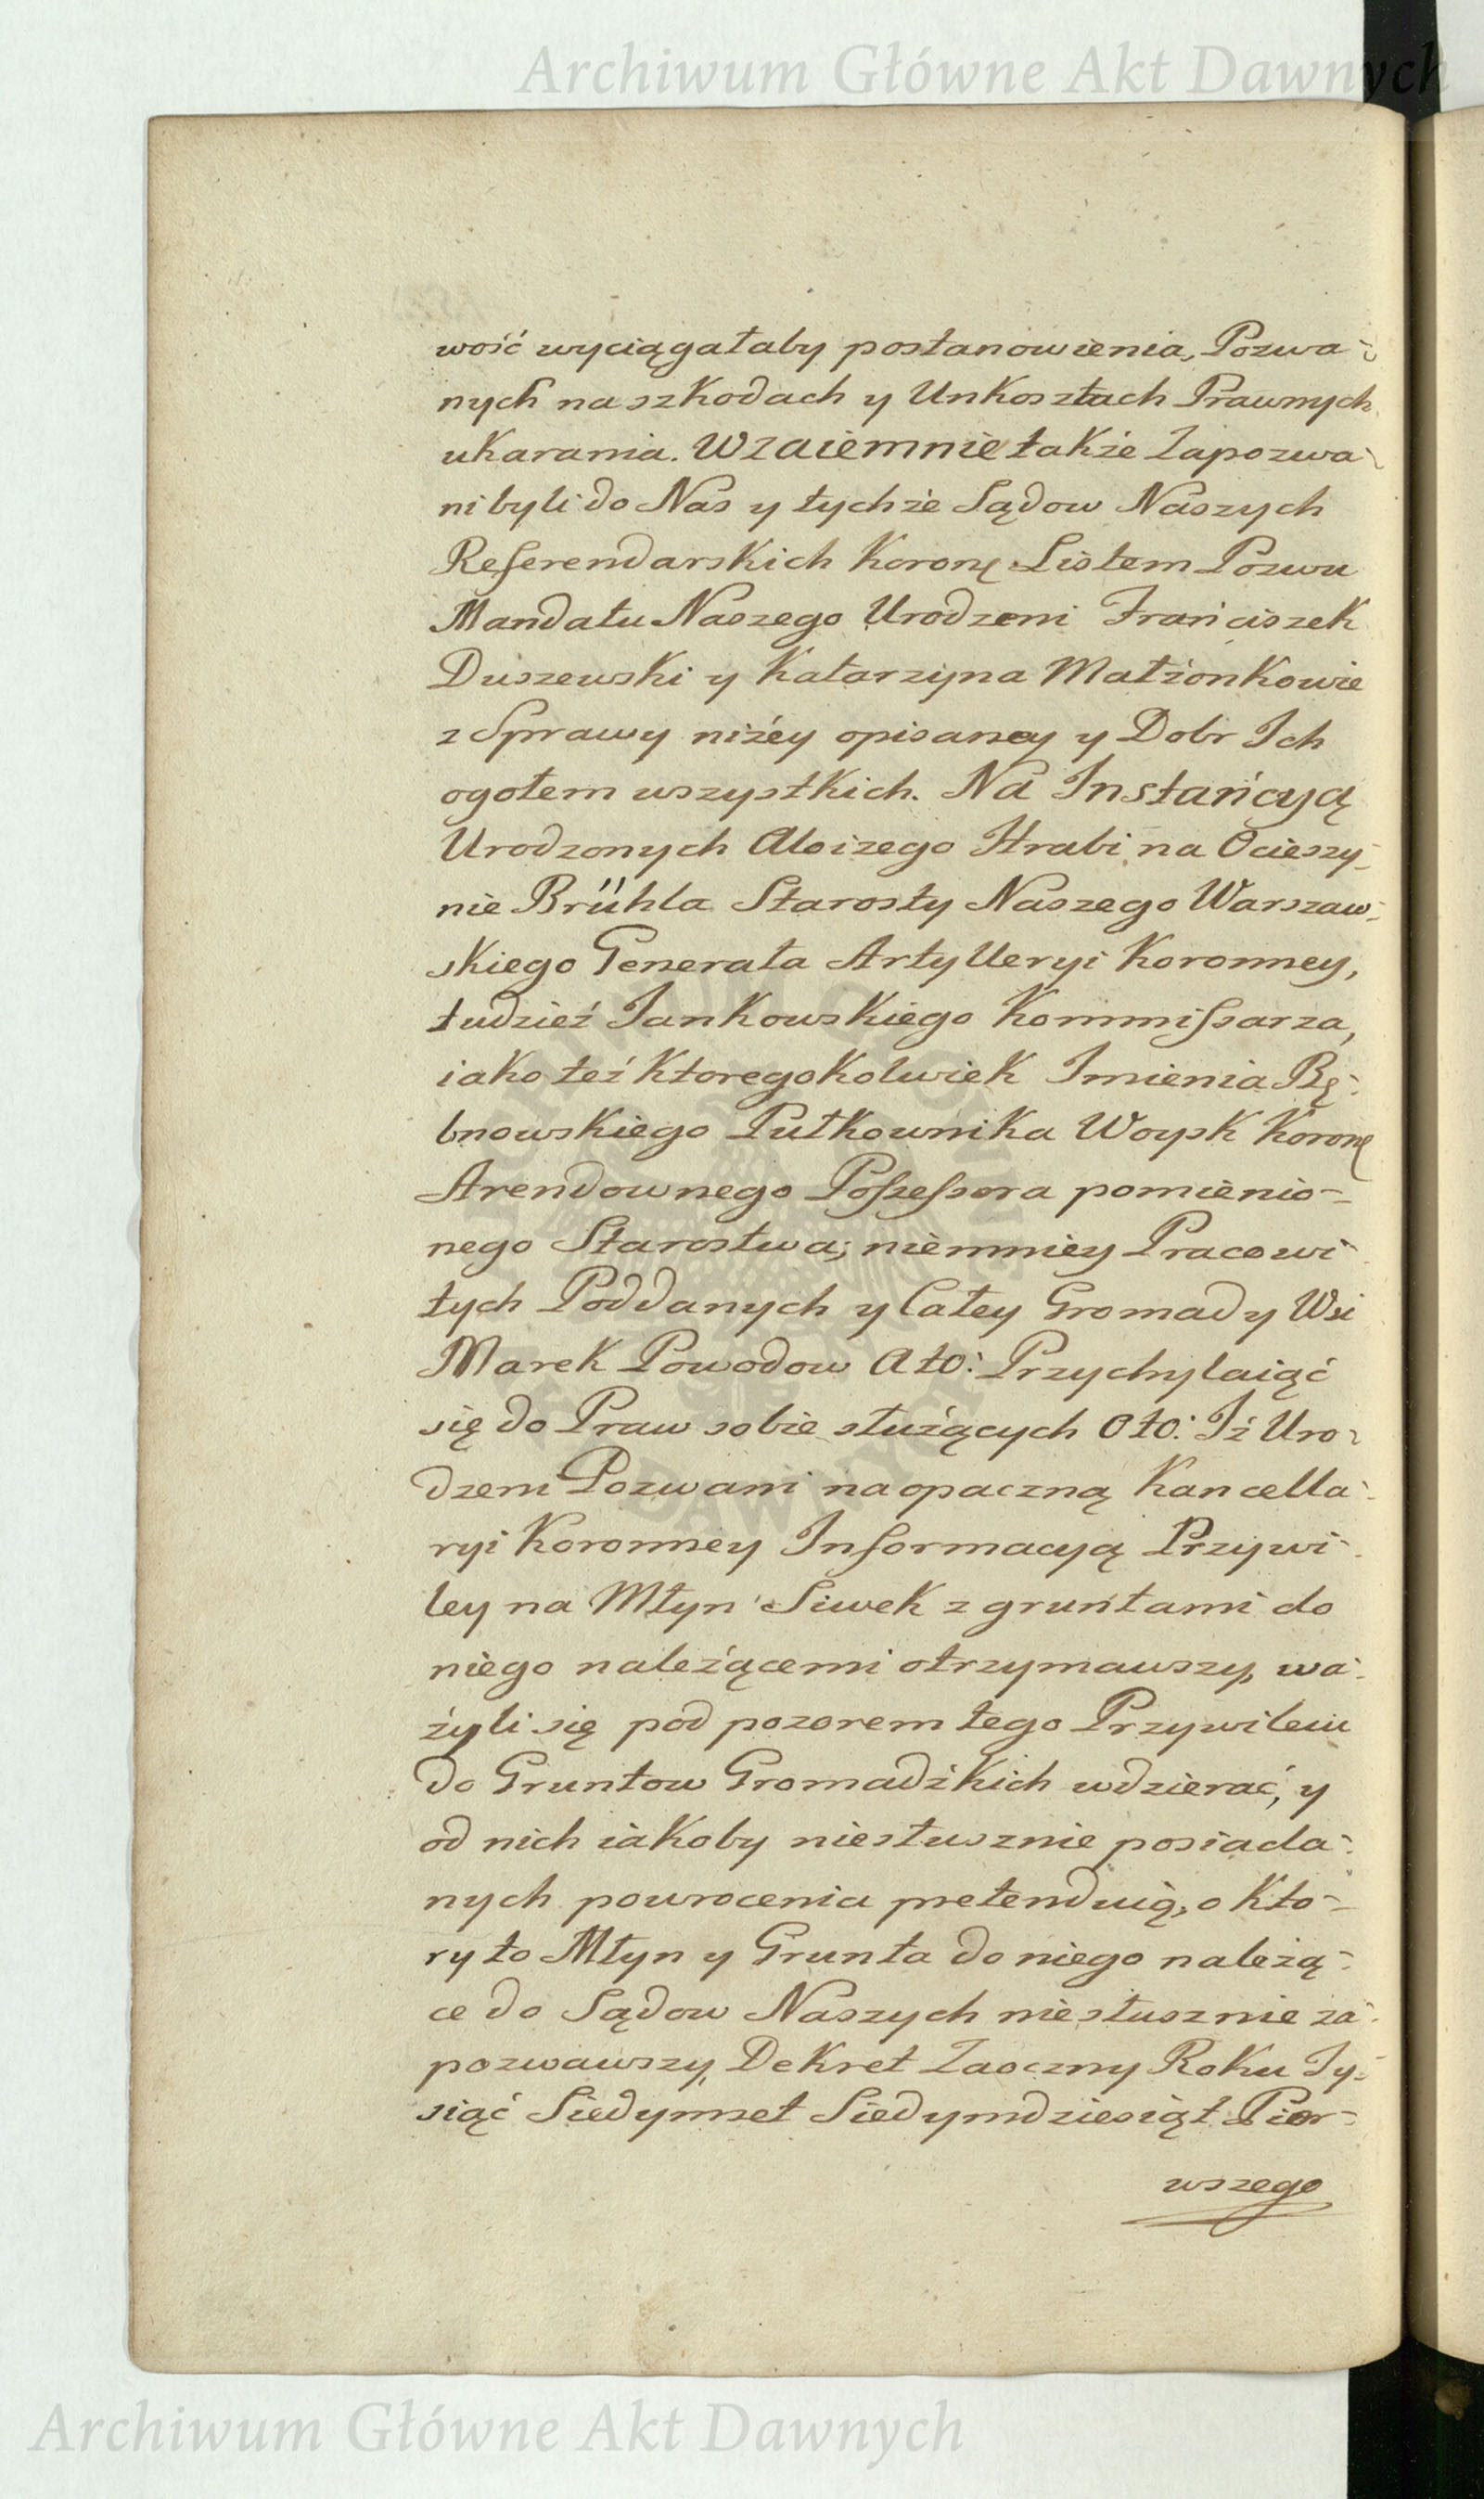 Archiwum Główne Akt Dawnych
wość wyciągałaby postanowienia, Pozwa-
nych na szkodach y Unkosztach Prawnych
ukarania. Wzaiemnie także Zapozwa-
ni byli do Nas y tychże Sądow Naszych
Referendarskich Koronę Listem Pozwu
Mandatu Naszego Urodzeni Frańciszek
Duszewski y Katarzyna Małżonkowie
z Sprawy niżey opisaney y Dobr Ich
ogołem wszystkich. Na Instańcyą
Urodzonych Aloizego Hrabi na Ocieszy-
nie Brühla Starosty Naszego Warszaw-
skiego Generała Artylleryi Koronney,
tudzież Jankowskiego Kommissarza,
iako też ktoregokolwiek Imienia Rę-
bnowskiego Pułkownika Woysk Koronę
Arendownego Possessora pomienio-
nego Starostwa; niemniey Pracowi-
tych Poddanych y Całey Gromady Wsi
Marek Powodow Ato: Przychylaiąć
się do Praw sobie służących Oto: Iż Uro-
dzeni Pozwani na opaczną Kancella-
ryi Koronney Informacyą Przywi-
ley na Młyn Siwek z gruntami do
niego należącemi otrzymawszy, wa-
żyli się pod pozorem tego Przywileiu
do Gruntow Gromadźkich wdzierać, y
od nich iakoby niesłusznie posiada-
nych powrocenia pretenduią, o Kto-
ry to Młyn y Grunta do niego należą-
ce do Sądow Naszych niesłusznie za-
pozwawszy, Dekret Zaoczny Roku Ty-
siąć Siedymset Siedymdziesiąt Pier-
wszego
Archiwum Główne Akt Dawnych